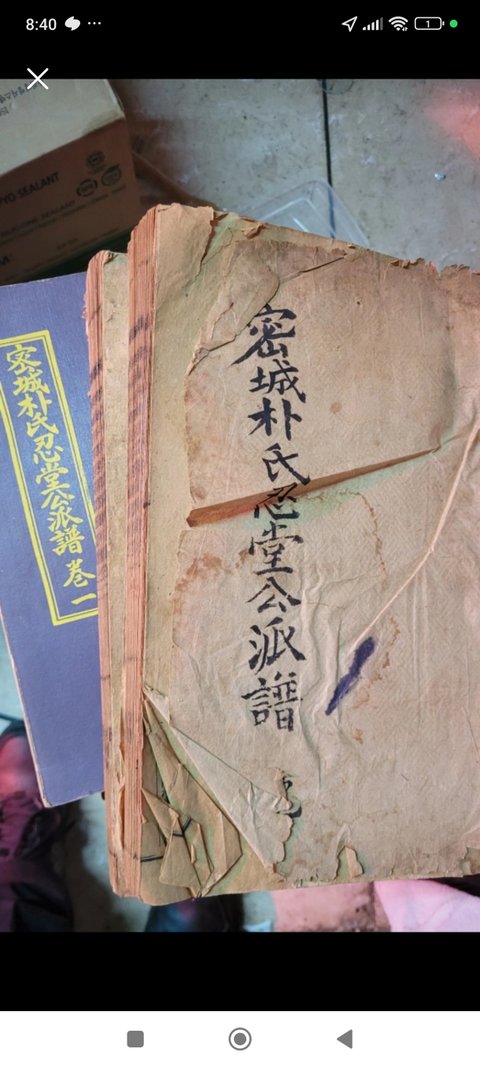 8:40
1
YO SEALANT
SILICONE SEALANT
密城朴氏忍堂公派譜 卷一
密城朴氏忍堂公派譜